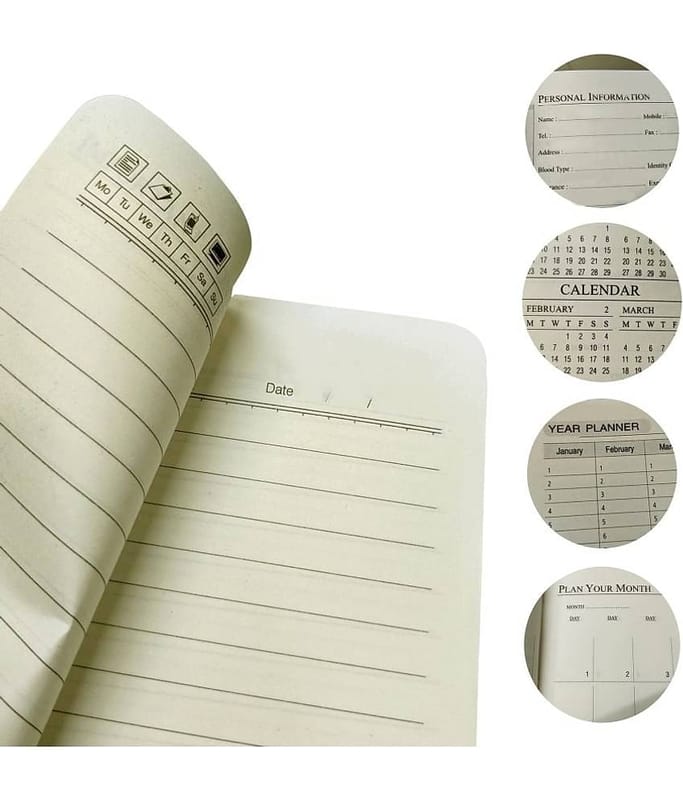 Mo Tu We Th Fr Sa Su
Date / /
PERSONAL INFORMATION
Name : Mobile :
Tel. : Fax :
Address :
Blood Type : Identity
1
4 5 6 7 8 6 7 8 9
10 11 12 13 14 15 13 14 15 16
17 18 19 20 21 22 20 21 22 23
23 24 25 26 27 28 29 27 28 29 30
CALENDAR
FEBRUARY 2 MARCH
M T W T F S S M T W T F
1 2 3 4
6 7 8 9 10 11 4 5 6 7
14 15 16 17 18 11 12 13 14
22 23 24 25 18 19
YEAR PLANNER
January February
1 1 1
2 2 2
3 3 3
4 4 4
5 5 5
6
PLAN YOUR MONTH
MONTH
DAY DAY DAY
1 2 3